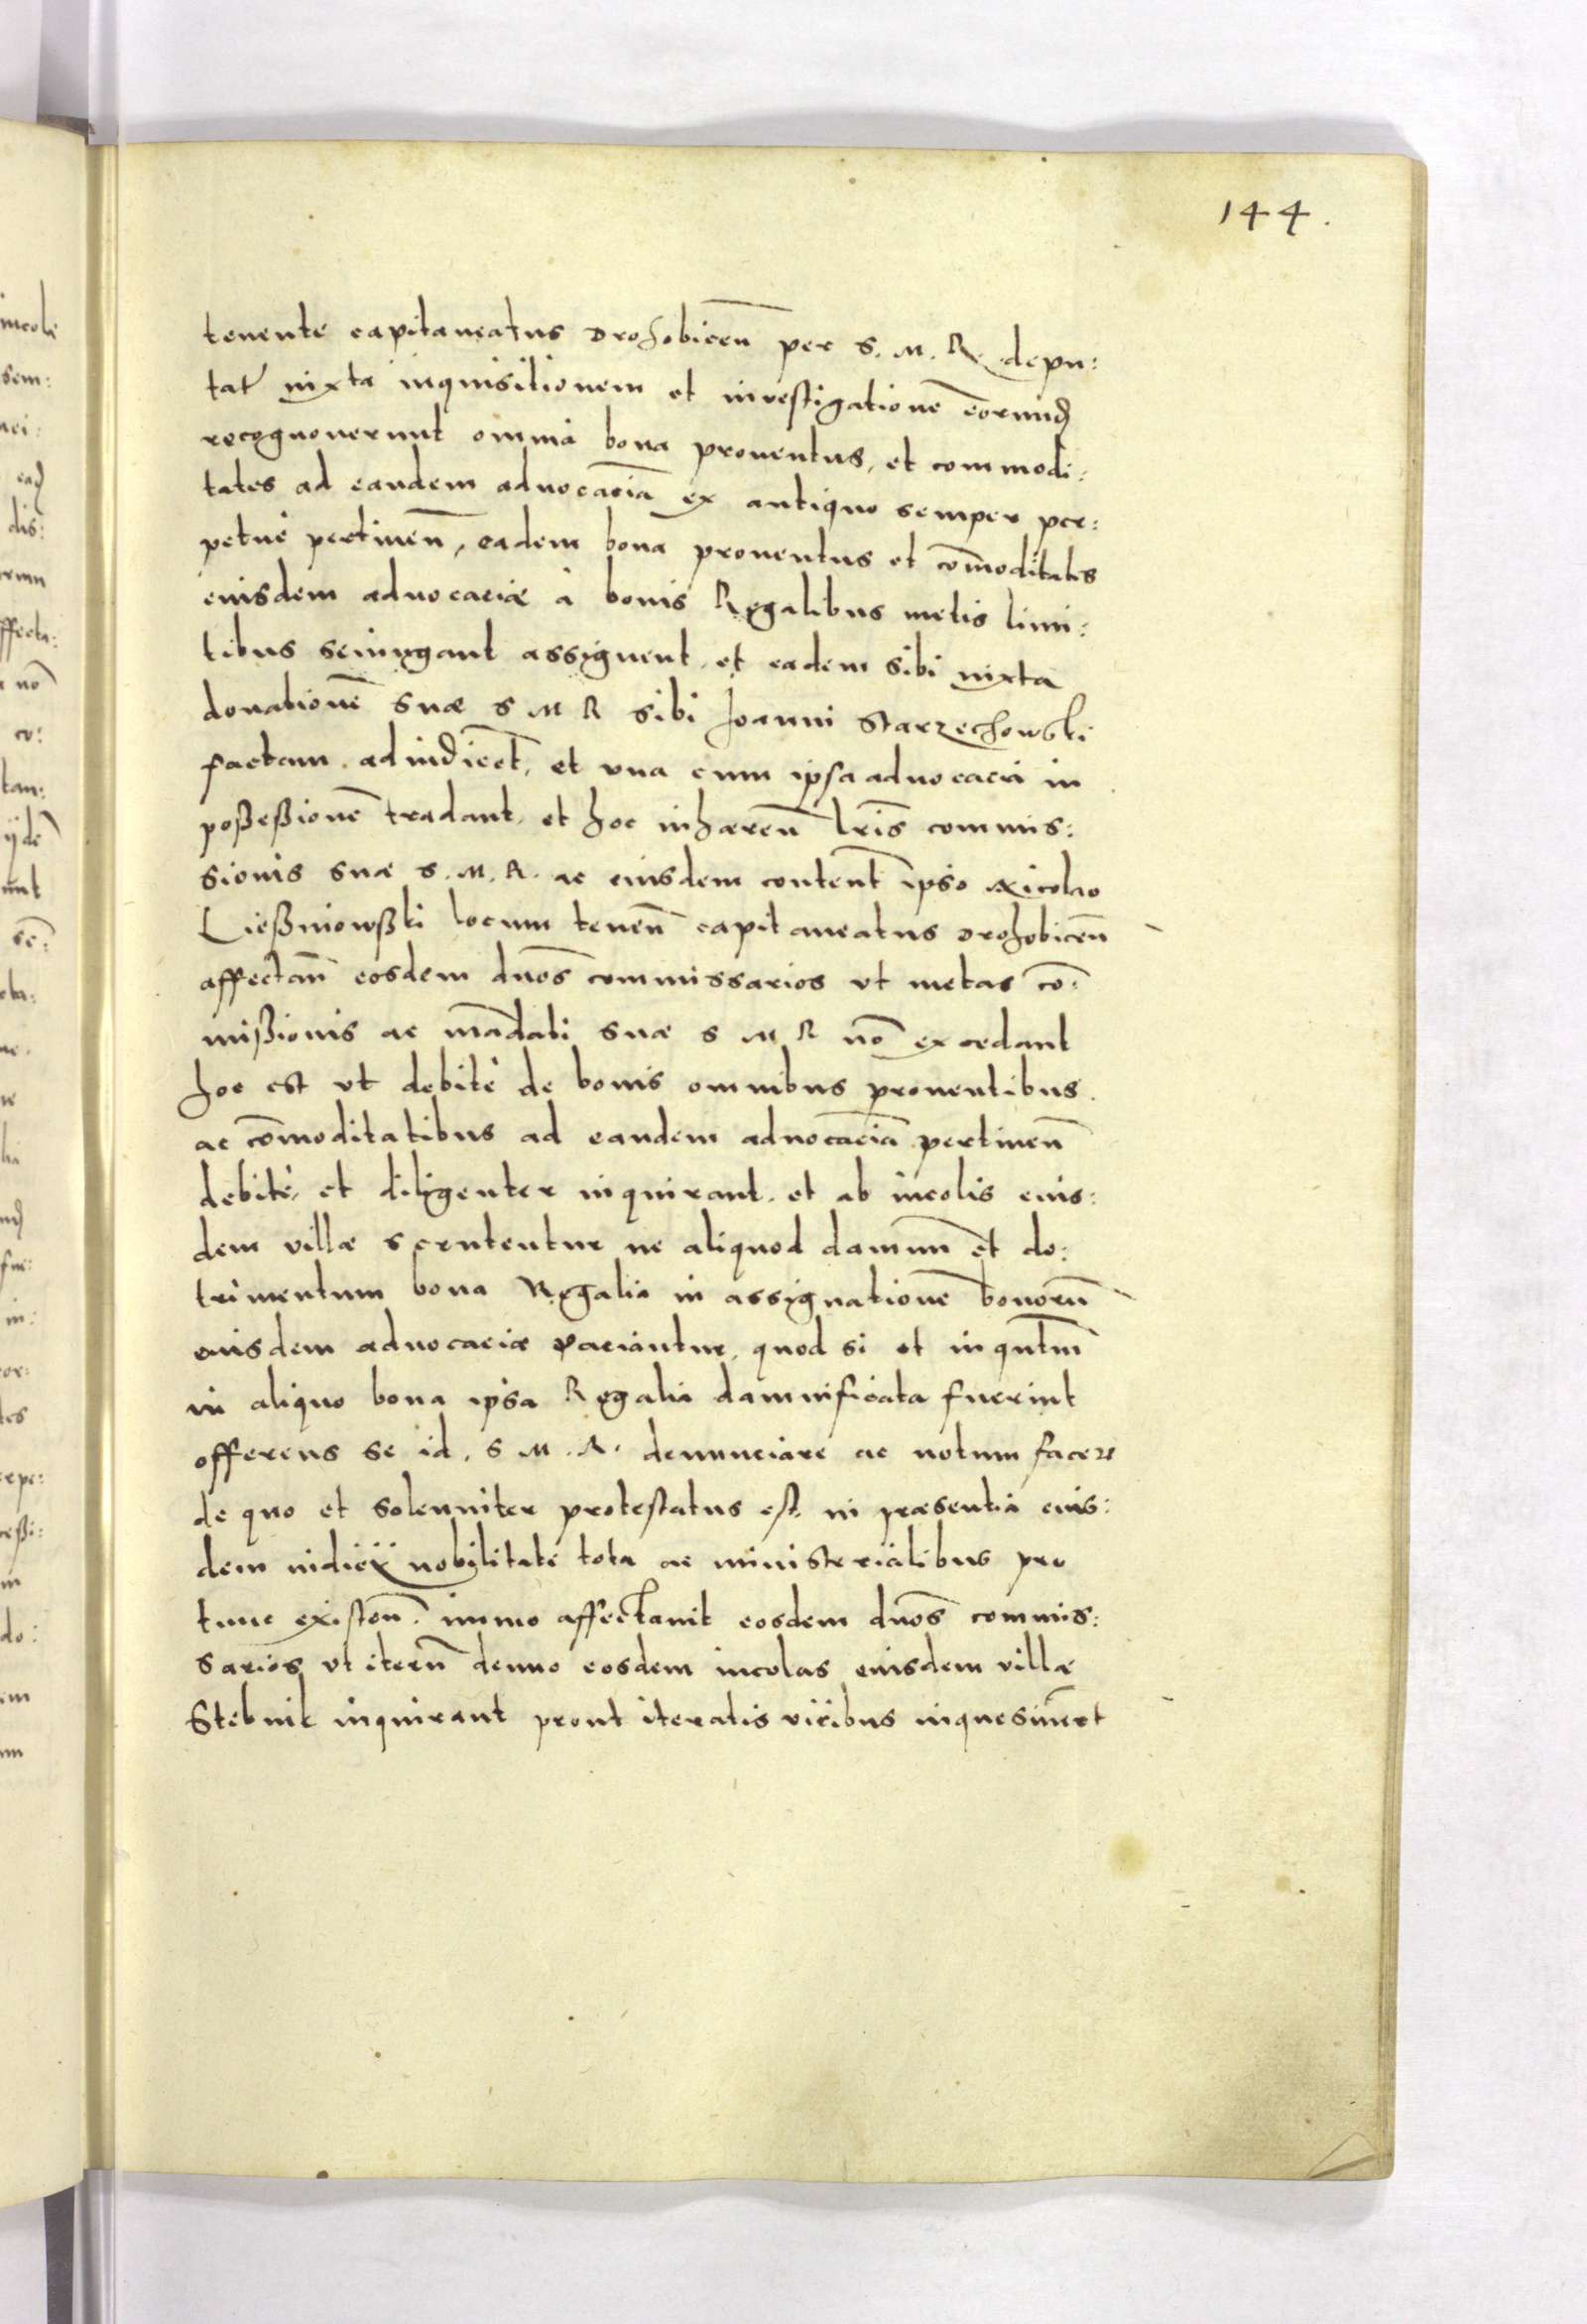 144.
tenente capitaneatus Drohobicen̄ per S. M. R. depu:
tat iuxta inquisitionem et inuestigationē eorund
recognouerunt omnia bona prouentus, et commodi:
tates ad eandem aduocaciā ex antiquo semper per:
petue pertinen̄, eadem bona prouentus et com̄oditates
eiusdem aduocaciæ à bonis Regalibus metis limi:
tibus seiungant assignent, et eadem sibi iuxta
donationē suæ S M R sibi Joanni Starzechowski
factam adiudicēt, et vna cum ipsa aduocacia in
poßeßionē tradant, et hoc inhæren̄ lr̄is commis:
sionis suæ S. M. R. ac eiusdem content̄ ipso Nicolao
Ließniowßki locum tenen̄ capitaneatus Drohobicen̄
affectan̄ eosdem dn̄os commissarios vt metas cō:
mißionis ac mādati suæ S M R nō excedant
hoc est vt debitè de bonis omnibus prouentibus
ac cōmoditatibus ad eandem aduocaciā pertinen̄
debitè, et diligenter inquirant, et ab incolis eius:
dem villæ scrutentur ne aliquod damnum et de:
trimentum bona Regalia in assignationē bonorū
eiusdem aduocaciæ paciantur, quod si et inqn̄tum
in aliquo bona ipsa Regalia damnificata fuerint
offerens se id, S M. R. denunciare ac notum facere
de quo et solenniter protestatus est in præsentia eius:
dem iudicij nobilitate tota ac ministerialibus pro
tunc existen̄. immo affectauit eosdem dn̄os commis:
sarios vt iterū denuo eosdem incolas eiusdem villæ
Stebnik inquirant prout iteratis vicibus inquesiuer̄t